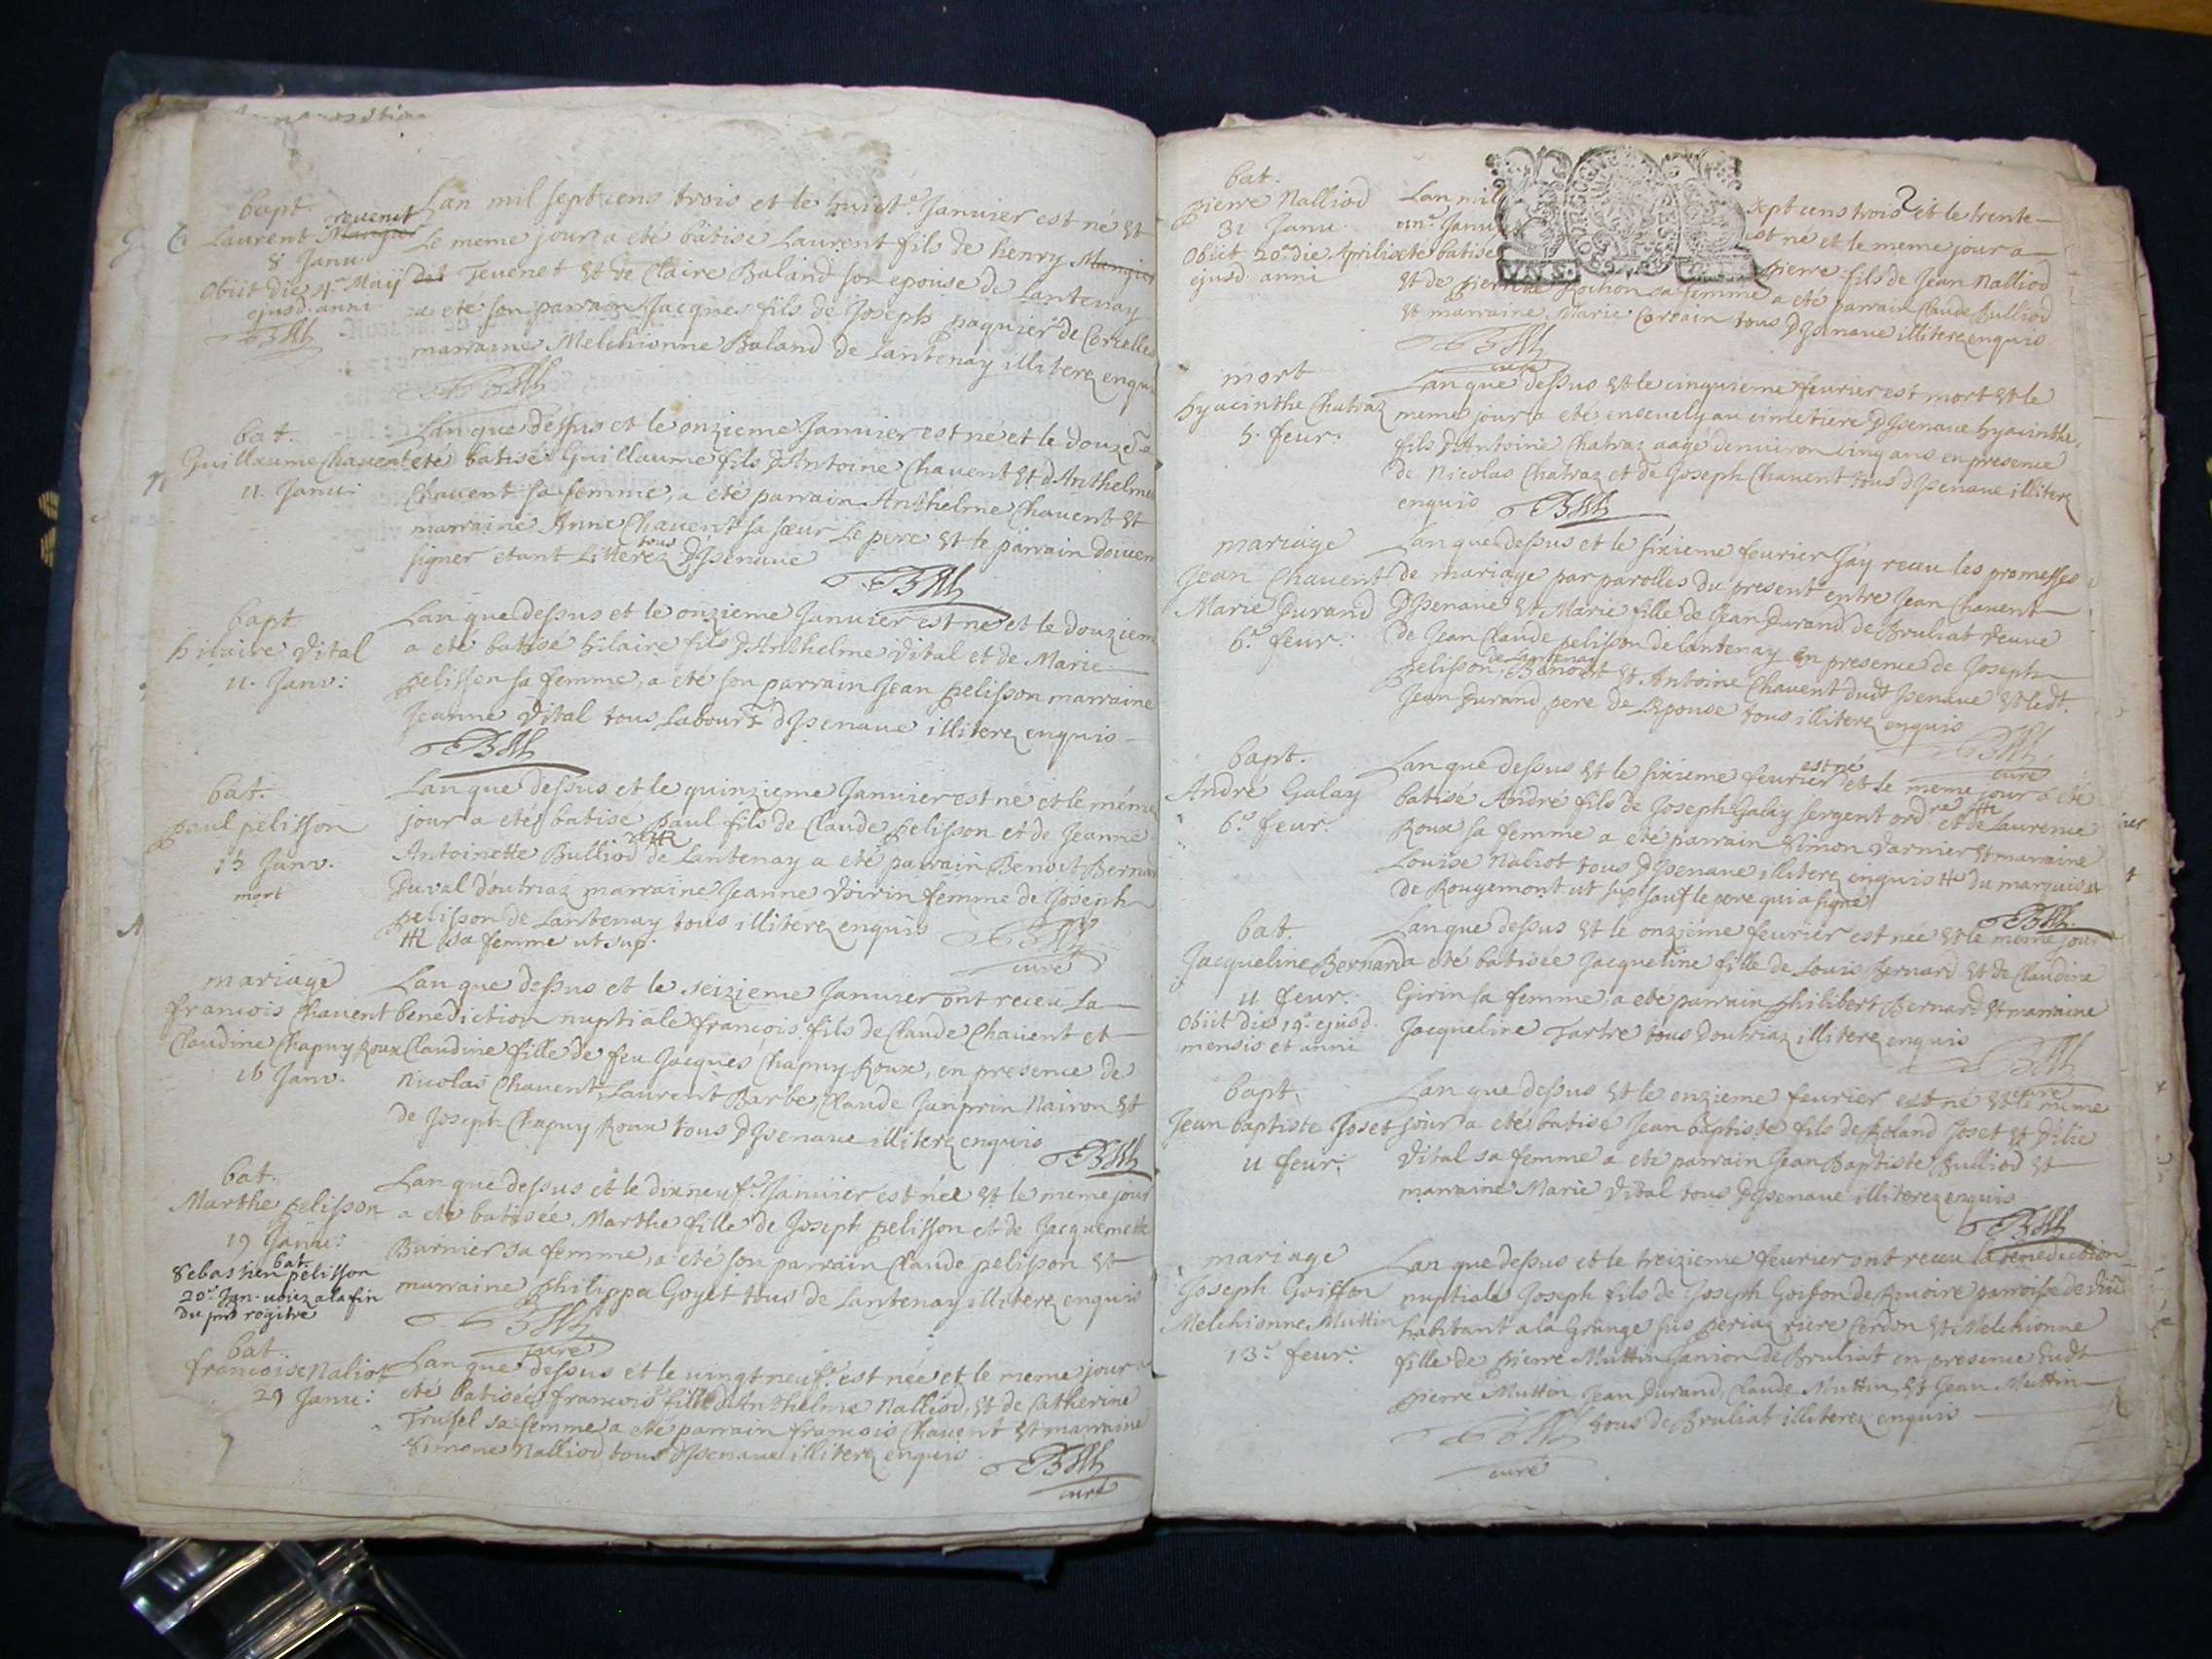 bapt.
Laurent Tevenet
8 Janu:
Obiit die 4.ª Maij
ejusd. anni
Lan mil sept cens trois et le huict.e Janvier est né et
Le meme jour a eté batisé Laurent fils de henry Mangier
dit Tevenet et de Claire Baland son epouse de Lantenay
a eté son parrain Jacques fils de Joseph paquier de Corcelles
marraine Melchionne Baland de Lantenay illiterez enquis
bat.
Guillaume Chavent
11. Janu:
Lan que dessus et le onzieme Janvier est né et le douze a
eté batisé Guillaume fils D'Antoine Chavent et d'Anthelme
Chavent sa femme, a eté parrain Anthelme Chavent et
marraine Anne Chavent sa sœur Le pere et le parrain doivent
signer etant Litterez tous D'Jsenave
bapt.
hilaire Vital
11. Janv:
Lan que dessus et le onzieme Janvier est né et le douziem
a eté batisé hilaire fils D'Anthelme Vital et de Marie
pelisson sa femme, a eté son parrain Jean pelisson marraine
Jeanne Vital tous Labour.s D'Jsenave illiterez enquis
bat.
paul pelisson
15 Janv.
mort
Lan que dessus et le quinzieme Janvier est né et le méme
jour a eté batisé paul fils de Claude pelisson et de Jeanne
Antoinette Bulliod de Lantenay a eté parrain Benoit Bernard
Duval doutriaz marraine Jeanne Voirin femme de Joseph
pelisson de Lantenay tous illiterez enquis
sa femme ut sup.
mariage
francois Chavent
Claudine Chapuy Roux
16 Janv.
Lan que dessus et le seizieme Janvier ont receu La
benediction nuptiale francois fils de Claude Chavent et
Claudine fille de feu Jacques Chapuy Roux, en presence de
Nicolas Chavent, Laurent Barbe Claude Janprin Nairon et
de Joseph Chapuy Roux tous D'Jsenave illiterez enquis
bat.
Marthe pelisson
19 Janu:
Lan que dessus et le dixneuf.e Janvier est née et le meme jour
a eté batisée Marthe fille de Joseph pelisson et de Jacquemette
Burnier sa femme, a eté son parrain Claude pelisson et
marraine philippa Goyet tous de Lantenay illiterez enquis
curé
bat.
Sebastien pelisson
20.e Jan. voiez a la fin
du pnt regitre
bat.
francoise Naliot
29 Janu:
Lan que dessus et le vingt neuf.e est née et le meme jour a
eté batisée francoise fille d'Anthelme Nalliod, et de Catherine
Trusel sa femme a eté parrain francois Chavent et marraine
Simone Nalliod tous D'Jsenave illiterez enquis
curé
2
bat.
pierre Nalliod
31 Janu.
Obiit 20.ª die Aprilis
ejusd. anni
Lan mil sept cens trois et le trente
un.e Janvier est né et le meme jour a
eté batisé pierre fils de Jean Nalliod
et de pierrette Rochon sa femme a eté parrain Claude Bulliod
et marraine Marie Carrain tous D'Jsenave illiterez enquis
curé
mort
hyacinthe Chatraz
5. feur:
Lan que dessus et le cinquieme fevrier est mort et le
meme jour a eté ensevely au cimetiere D'Jsenave hyacinthe
fils D'Antoine Chatraz aagé denviron cinq ans en presence
de Nicolas Chatraz et de Joseph Chavent tous d'Jsenave illiterez
enquis
mariage
Jean Chavent
Marie Durand
6.e feur:
Lan que dessus et le sixieme fevrier J'ay receu les promesses
de mariage par parolles du present entre Jean Chavent
D'Jsenave et Marie fille de Jean Durand de Bruliat veuve
de Jean Claude pelisson de Lantenay en presence de Joseph
pelisson de Lantenay Benoit et Antoine Chavent dudt Jsenave et ledt.
Jean Durand pere de Lepouse tous illiterez enquis
curé
bapt.
André Galay
6.e feur.
Lan que dessus et le sixieme fevrier est né et le meme jour a eté
batisé André fils de Joseph Galay sergent ord.re et de Laurence
Roux sa femme a eté parrain Simon Darnier et marraine
Louise Naliot tous D'Jsenave illiterez enquis du marquisat
de Rougemont ut sup sauf le pere qui a signé
bat.
Jacqueline Bernard
11 feur.
Obiit die 19.ª ejusd.
mensis et anni
Lan que dessus et le onzieme fevrier est née et le meme jour
a eté batisée Jacqueline fille de Louis Bernard et de Claudine
Girin sa femme a eté parrain philibert Bernard et marraine
Jacqueline Tartre tous Doutriaz illiterez enquis
curé
bapt.
Jean baptiste Joset
11 feur:
Lan que dessus et le onzieme fevrier est né et le meme
jour a eté batisé Jean baptiste fils de Roland Joset et D'elie
Vital sa femme a eté parrain Jean Baptiste Bulliod et
marraine Marie Vital tous D'Jsenave illiterez enquis
mariage
Joseph Goiffon
Melchionne Muttin
13.e feur:
Lan que dessus et le treizieme fevrier ont receu la benediction
nuptiale Joseph fils de Joseph Goifon de Rmoire parroisse de
habitant a la Grange sus periaz riere Cerdon et Melchionne
fille de pierre Muttin Janion de Bruliat en presence dudt
pierre Muttin, Jean Durand, Claude Muttin, et Jean Muttin
tous de Bruliat illiterez enquis
curé